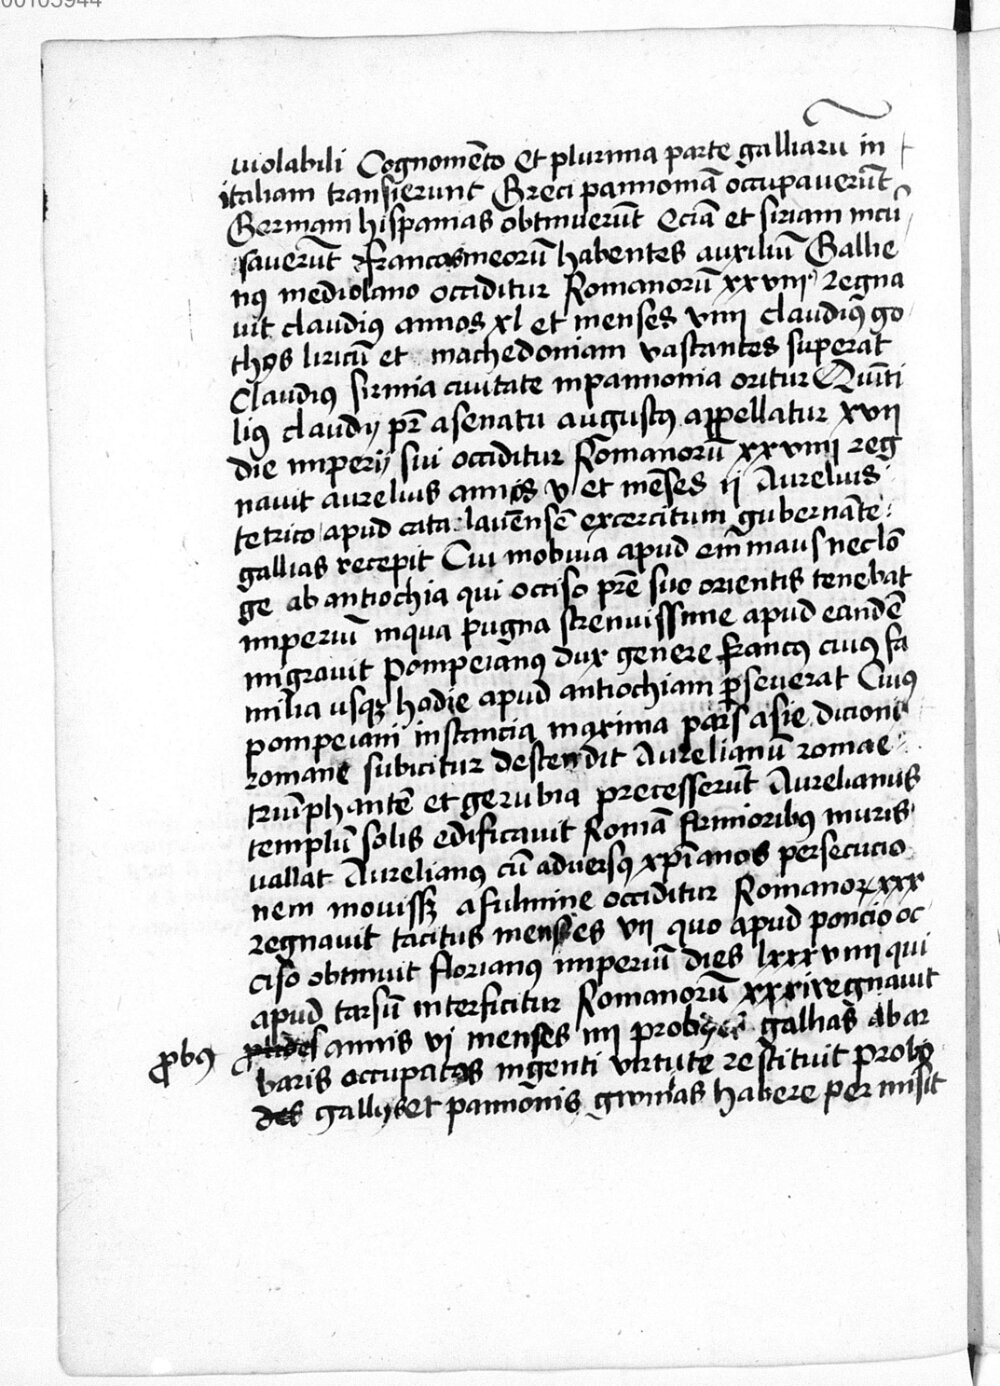 00105944
uiolabili Cognomēto Et plurima parte galliarū in
italiam transierunt Greci pannoniā occupauerūt
Germani hispanias obtinuerūt Eciā et siriam incū
sauerūt francos meorū habentes auxiliū Gallie
nꝰ mediolano occiditur Romanorū xxviii Regna
uit claudiꝰ annos xl et menses viiii claudiꝰ go
thos liricū et machedoniam vastantes superat
Claudiꝰ sirmia ciuitate in pannonia oritur Quīti
liꝰ claudij pr̄ a senatu augustꝰ appellatur xvii
die imperij sui occiditur Romanorū xxviiii reg
nauit aurelius annos v et mēses ij Aurelius
tetrico apud cata lauēnsē excercitum gubernāte
gallias recepit Cui mobiuia apud em̄maus nec lō
ge ab antiochia qui occiso prē suo orientis tenebat
imperiū in qua pugna strenuissime apud eandē
migrauit Pompeianꝰ dux genere francꝰ cuiꝰ fa
milia usqꝫ hodie apud antiochiam ꝑseuerat Cuiꝰ
pompeiani instancia maxima pars asie dicioni
romane subicitur descendit Aurelianū romae
triūphantē et gerubia precesserūt Aurelianus
templū solis edificauit Romā firmioribꝰ muris
uallat Aurelianꝰ cū aduersꝰ xp̄ianos persecucio
nem mouissꝫ a fulmine occiditur Romanoꝝ xxx
regnauit tacitus menses vii quo apud poncio oc
ciso obtinuit florianꝰ imperiū dies lxxxviiii qui
apud tarsū interficitur Romanorū xxxi regnauit
ꝓbꝰ annis vi menses iiii probꝰ gallias a bar
baris occupatas ingenti virtute restituit Probꝰ
gallijs et pannōnis habere permisit